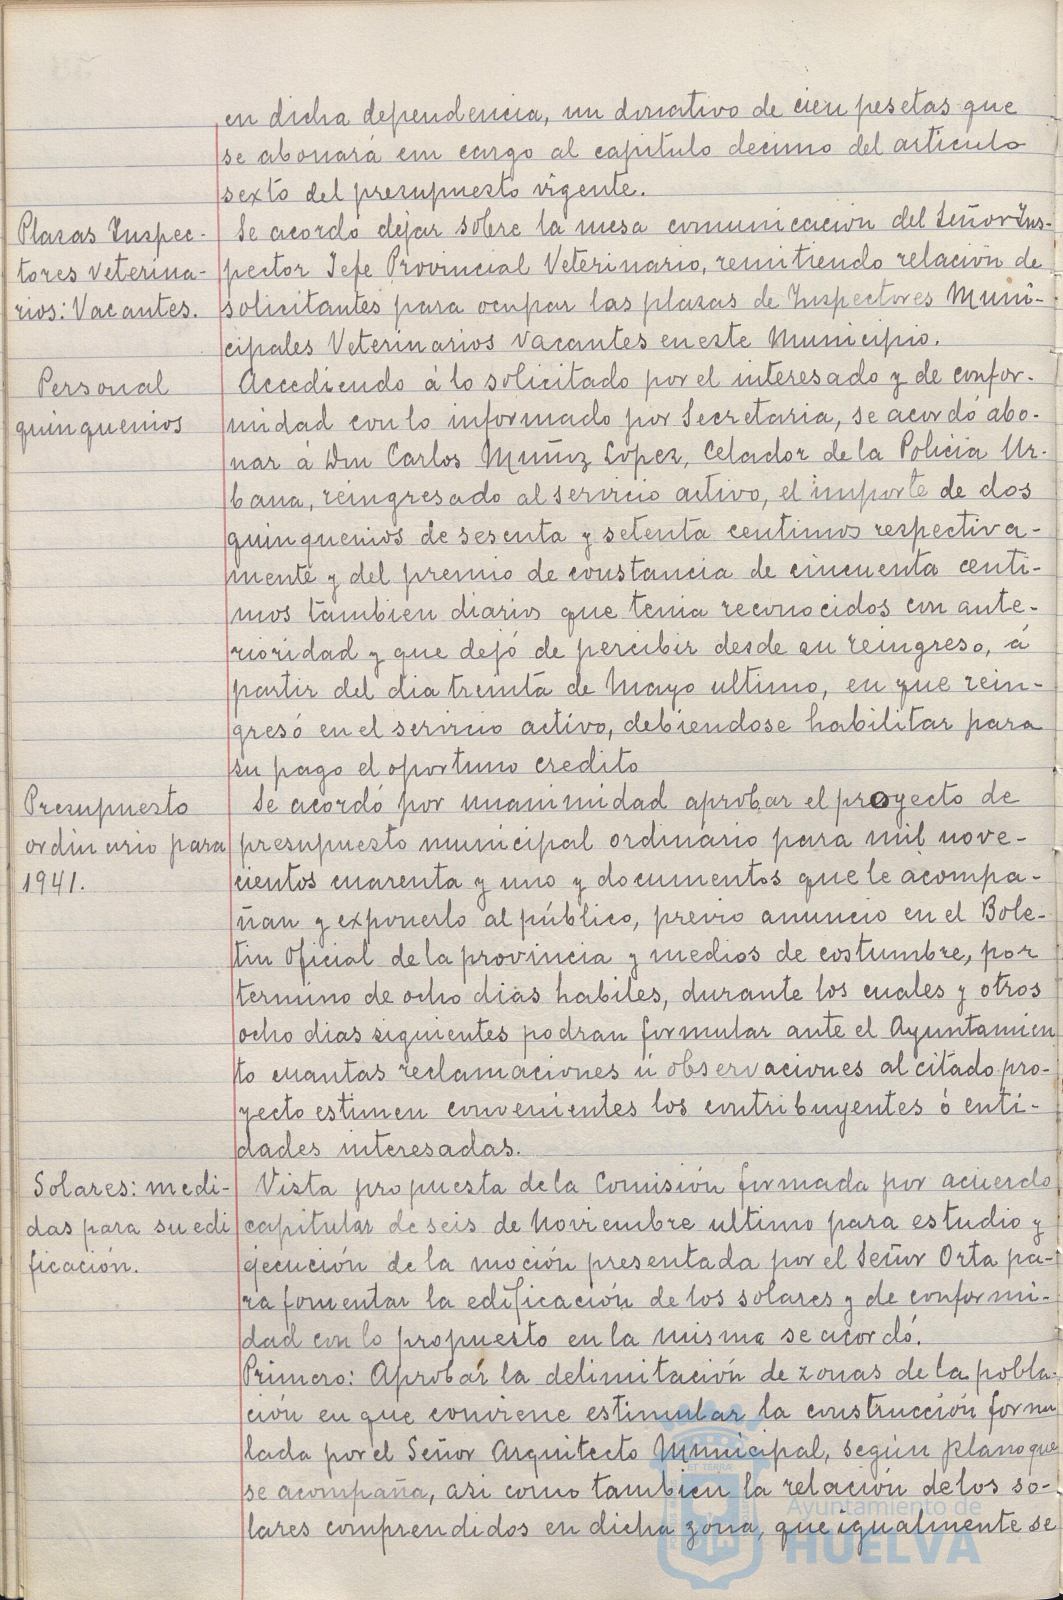 en dicha dependencia, un donativo de cien pesetas que
se abonará con cargo al capitulo decimo del articulo
sexto del presupuesto vigente.
Plazas Inspec-
tores veterina-
rios: Vacantes.
Se acordó dejar sobre la mesa comunicación del Señor Ins-
pector Jefe Provincial Veterinario, remitiendo relación de
solicitantes para ocupar las plazas de Inspectores Muni-
cipales Veterinarios vacantes en este Municipio.
Personal
quinquenios
Accediendo á lo solicitado por el interesado y de confor-
midad con lo informado por Secretaria, se acordó abo-
nar á Don Carlos Muñiz Lopez, Celador de la Policia Ur-
bana, reingresado al servicio activo, el importe de dos
quinquenios de sesenta y setenta centimos respectiva-
mente y del premio de constancia de cincuenta centi-
mos tambien diarios que tenia reconocidos con ante-
rioridad y que dejó de percibir desde su reingreso, á
partir del dia treinta de Mayo ultimo, en que rein-
gresó en el servicio activo, debiendose habilitar para
su pago el oportuno credito
Presupuesto
ordinario para
1941.
Se acordó por unanimidad aprobar el proyecto de
presupuesto municipal ordinario para mil nove-
cientos cuarenta y uno y documentos que le acompa-
ñan y exponerlo al público, previo anuncio en el Bole-
tin Oficial de la provincia y medios de costumbre, por
termino de ocho dias habiles, durante los cuales y otros
ocho dias siguientes podran formular ante el Ayuntamien
to cuantas reclamaciones ú observaciones al citado pro-
yecto estimen convenientes los contribuyentes ó enti-
dades interesadas.
Solares: medi-
das para su edi
ficación.
Vista propuesta de la Comisión formada por acuerdo
capitular de seis de Noviembre ultimo para estudio y
ejecución de la moción presentada por el Señor Orta pa-
ra fomentar la edificación de los solares y de conformi-
dad con lo propuesto en la misma se acordó.
Primero: Aprobar la delimitación de zonas de la pobla-
ción en que conviene estimular la construcción formu
lada por el Señor Arquitecto Municipal, según plano que
se acompaña, asi como tambien la relación de los so-
lares comprendidos en dicha zona, que igualmente se
Ayuntamiento de
HUELVA